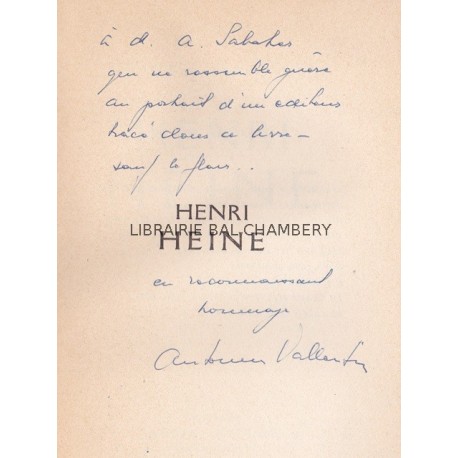 à d. A. Sabatier
qui ne ressemble guère
au portrait d'un éditeur
tracé dans ce livre —
sauf le flair..
HENRI
LIBRAIRIE BAL CHAMBERY
HEINE
en reconnaissant
hommage
Antonina Vallentin